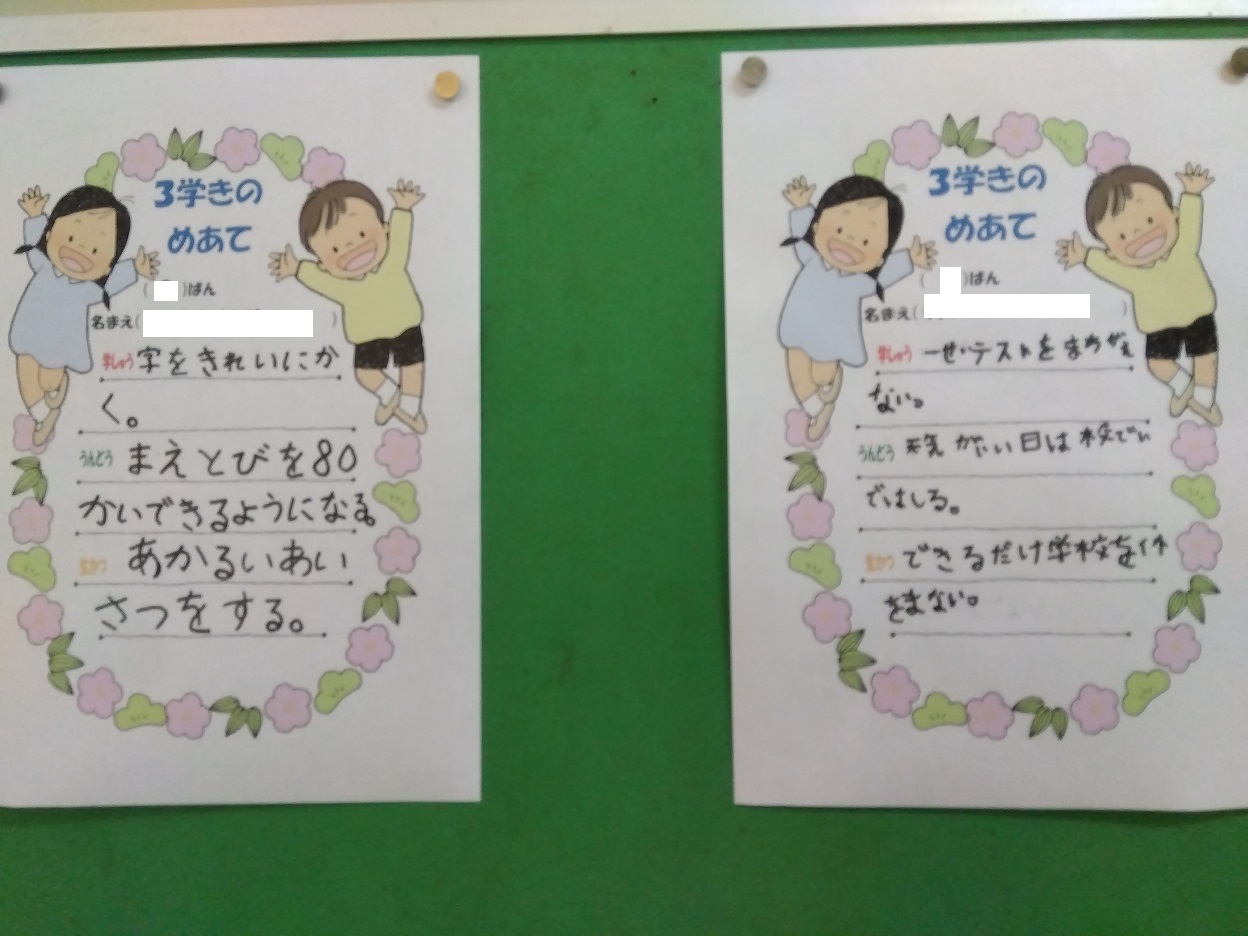 3学きの
めあて
( )ばん
名まえ( )
学しゅう 字をきれいにか
く。
うんどう まえとびを80
かいできるようになる。
生かつ あかるいあい
さつをする。
3学きの
めあて
( )ばん
名まえ( )
学しゅう テストをまちがえ
ない。
うんどう 天気がいい日は
ではしる。
生かつ できるだけ学校を休
まない。